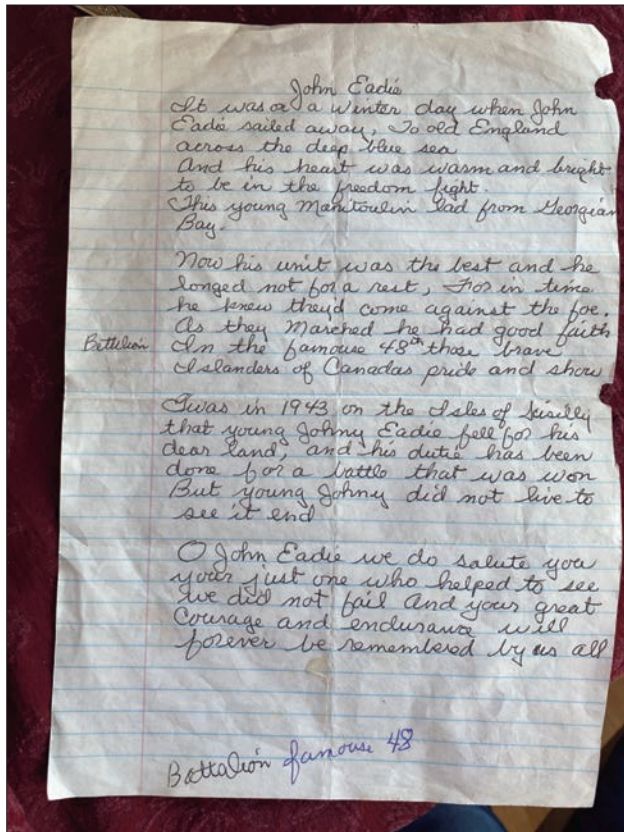 John Eadie
It was a a winter day when John
Eadie sailed away, To old England
across the deep blue sea
And his heart was warm and bright
to be in the freedom fight.
This young Manitoulin lad from Georgian
Bay.
Now his unit was the best and he
longed not for a rest, For in time
he knew they'd come against the foe.
As they Marched he had good faith
Battelion In the famouse 48th those brave
Islanders of Canadas pride and show
Twas in 1943 on the Isles of Sisilly
that young Johny Eadie fell for his
dear land, and his dutie has been
done for a battle that was won
But young Johny did not live to
see it end
O John Eadie we do salute you
your just one who helped to see
we did not fail And your great
Courage and endurance will
forever be remembered by us all
Battalion famouse 48